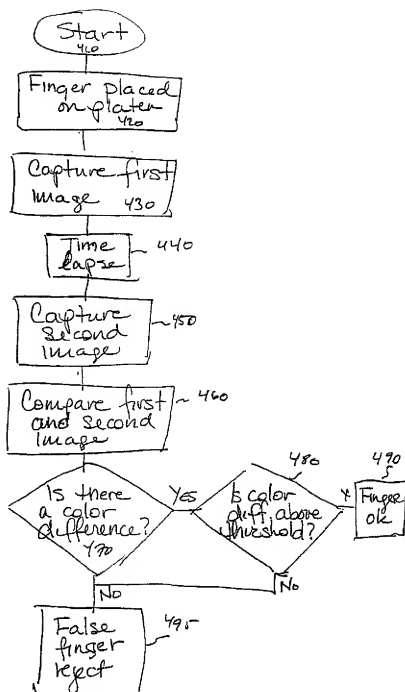 Start
410
Finger placed
on platen
420
Capture first
Image 430
Time
lapse
440
Capture
second
Image
450
Compare first
and second
Image
460
Is there
a color
difference?
470
YES
Is color
diff above
threshold?
480
Y
Finger
ok
490
No
No
False
finger
reject
495